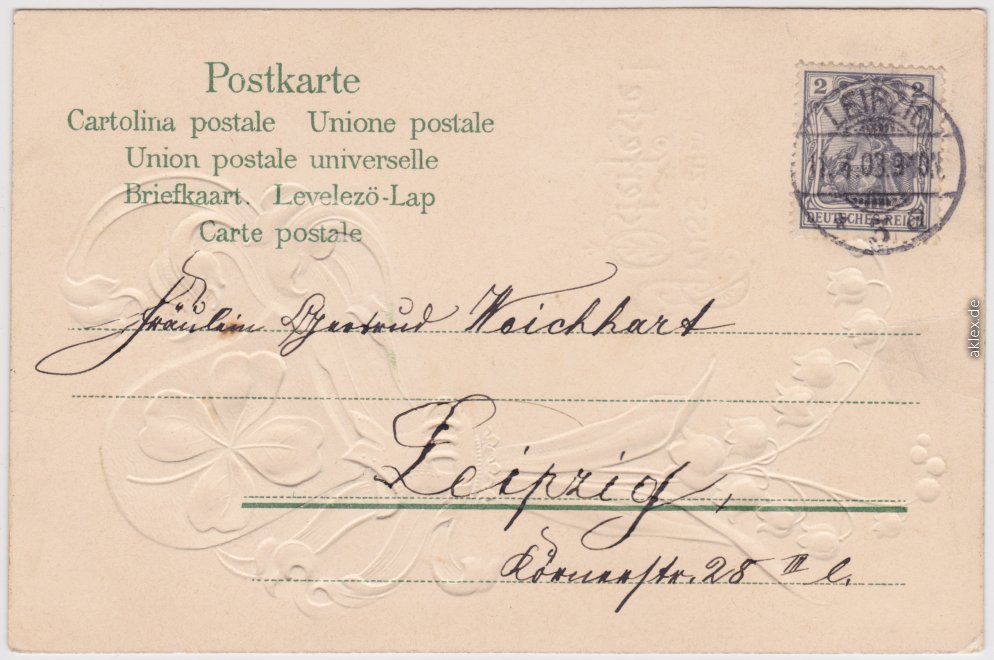 Postkarte
Cartolina postale Unione postale
Union postale universelle
Briefkaart. Levelező-Lap
Carte postale
2 2
DEUTSCHES REICH
LEIPZIG
11.4.03.9-10N.
* 3 d
Fräulein Gertrud Weichhart
Leipzig,
Körnerstr. 28 III l.
aklex.de